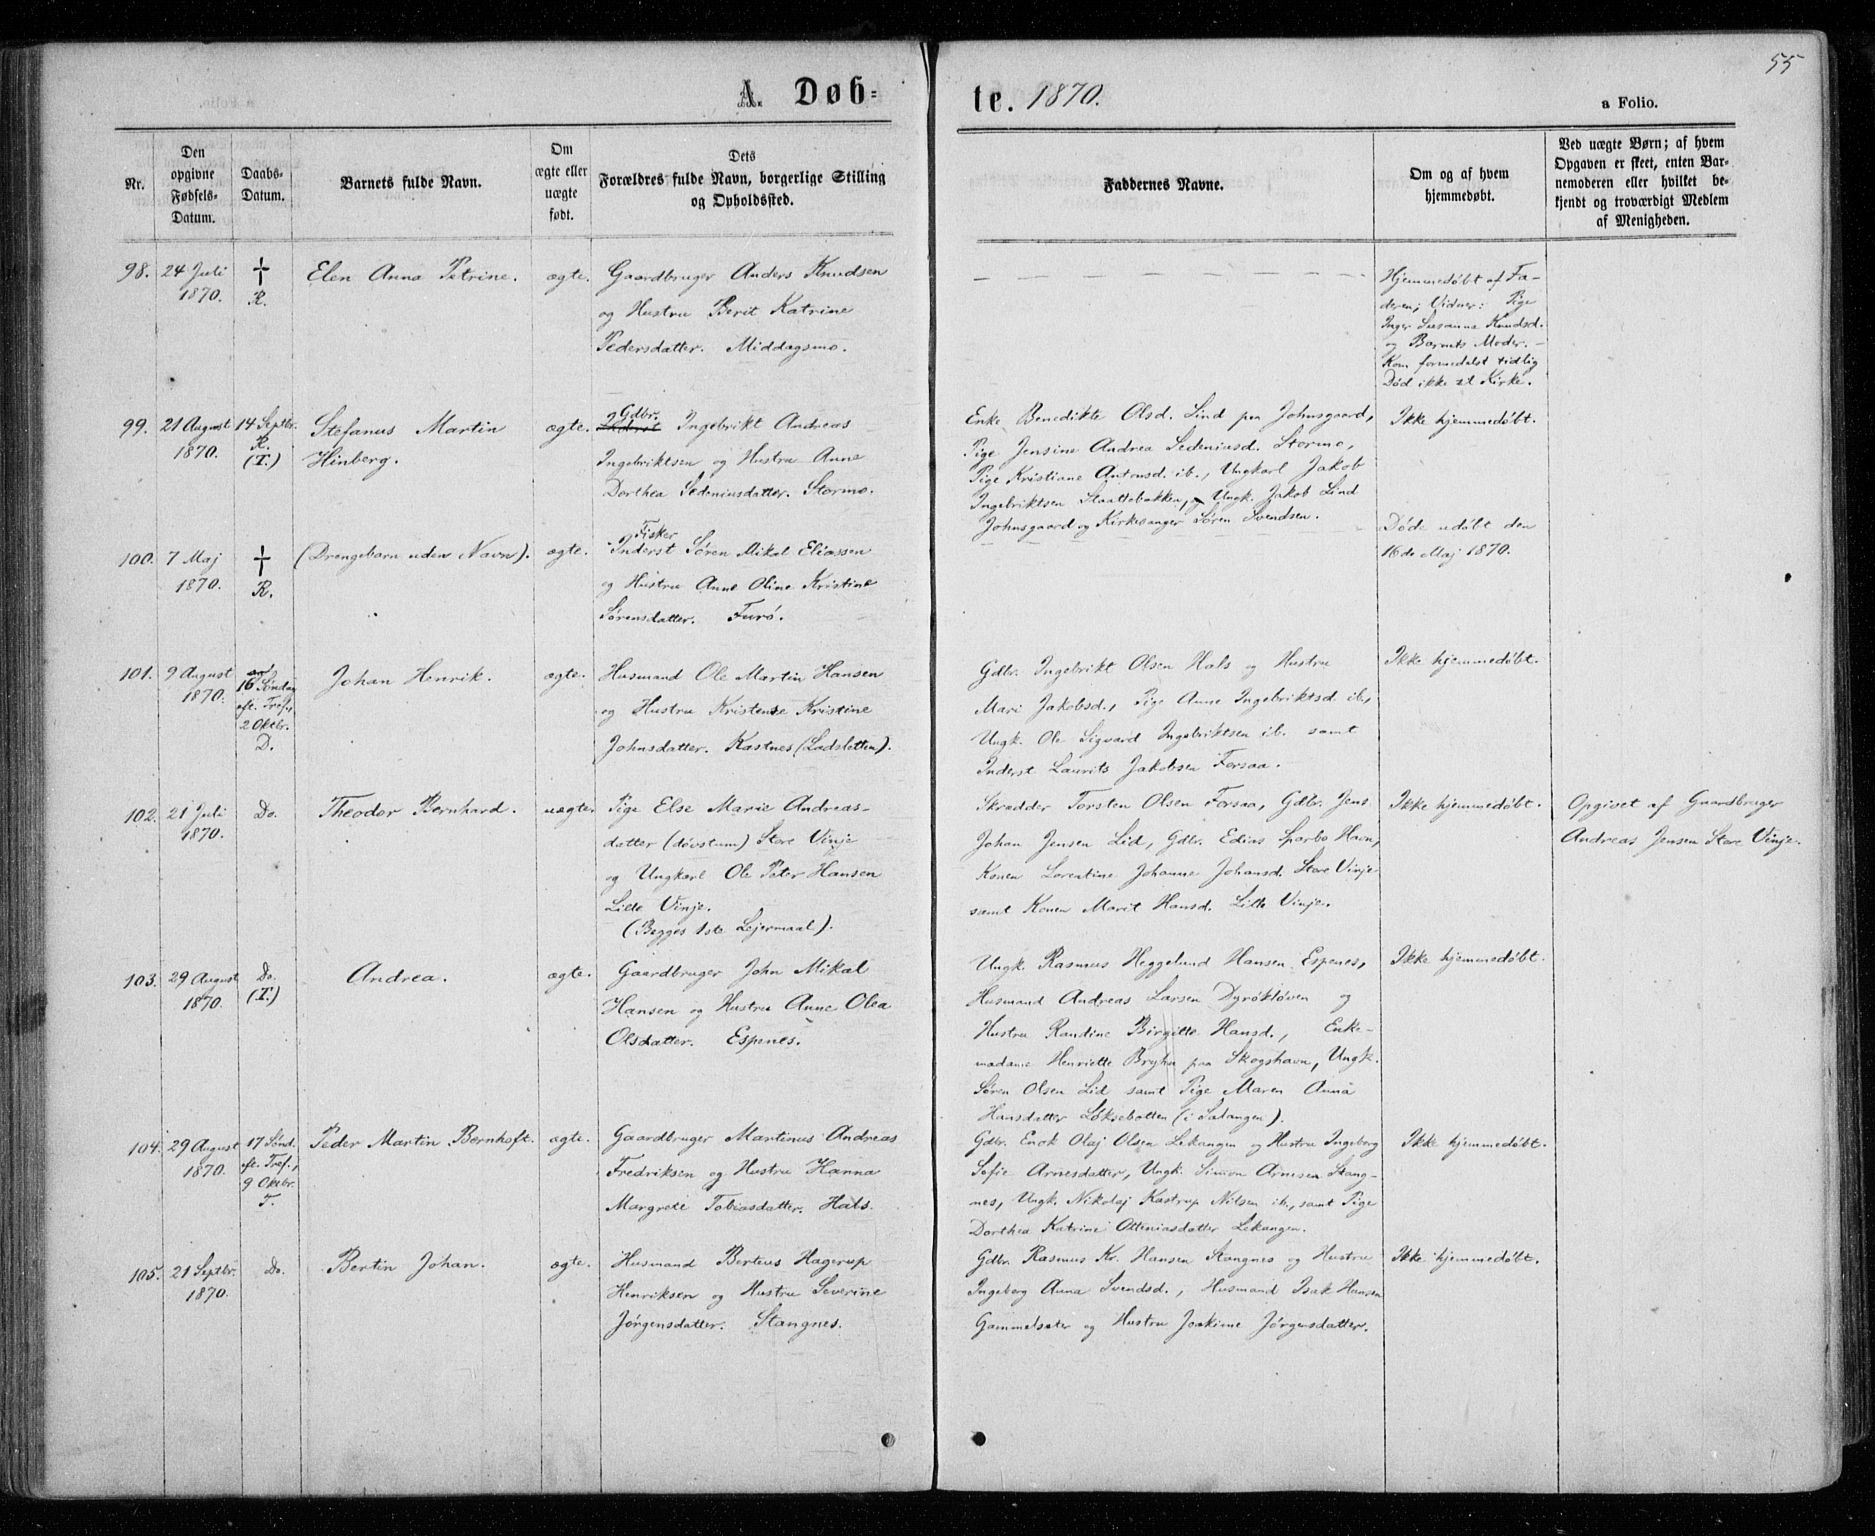 55
A. Døb=
te. 1870.
a Folio.
Nr.
Den
opgivne
Fødsels-
Datum.
Daabs-
Datum.
Barnets fulde Navn.
Om
ægte eller
uægte
født.
Dets
Forældres fulde Navn, borgerlige Stilling
og Opholdssted.
Faddernes Navne.
Om og af hvem
hjemmedøbt.
Ved uægte Børn; af hvem
Opgaven er skeet, enten Bar-
nemoderen eller hvilket be-
kjendt og troværdigt Medlem
af Menigheden.
98.
24 Juli
1870.
†
R.
Elen Anna Petrine.
ægte.
Gaardbruger Anders Knudsen
og Hustru Berit Katrine
Pedersdatter. Middagsmo.
Hjemmedøbt af Fa-
deren; Vidner: Pige
Inger Susanna Knudsd.
og Barnets Moder. -
Kom formedelst tidlig
Død ikke til Kirke.
99.
21 August
1870.
14 Septbr.
R.
(T.)
Stefanus Martin
Hinberg.
ægte.
Gdbr.
Inderst Ingebrikt Andreas
Ingebriktsen og Hustru Anne
Dorthea Sedeniusdatter. Stormo.
Enke Benedikte Olsd. Lind paa Johnsgaard,
Pige Jensine Andrea Sedeniusd. Stormo,
Pige Kristiane Antonsd. ib., Ungkarl Jakob
Ingebriktsen Slaattebakken, Ungk. Jakob Lind
Johnsgaard og Kirkesanger Søren Svendsen.
Ikke hjemmedøbt.
100.
7 Maj
1870.
†
R.
(Drengebarn uden Navn).
ægte.
Fisker
Inderst Søren Mikal Eliassen
og Hustru Anne Oline Kristine
Sørensdatter. Furø.
Døde udøbt den
16de Maj 1870.
101.
9 August
1870.
16 Søndag
eft. Tref.,
2 Oktbr.
D.
Johan Henrik.
ægte.
Husmand Ole Martin Hansen
og Hustru Kristense Kristine
Johnsdatter. Kastnes (Ladsletten).
Gdbr. Ingebrikt Olsen Hals og Hustru
Mari Jakobsd., Pige Anne Ingebriktsd ib.,
Ungk. Ole Sigvard Ingebriktsen ib. samt
Inderst Laurits Jakobsen Forsaa.
Ikke hjemmedøbt.
102.
21 Juli
1870.
Do.
Theodor Bernhard.
uægte.
Pige Else Marie Andreas-
datter (døvstum) Store Vinje
og Ungkarl Ole Peter Hansen
Lille Vinje.
(Begges 1ste Lejermaal).
Skrædder Torsten Olsen Forsaa, Gdbr. Jens
Johan Jensen Lid, Gdbr. Edias Sparbo Havn,
Konen Lorentine Johanne Johansd. Store Vinje
samt Konen Marit Hansd. Lille Vinje.
Ikke hjemmedøbt.
Opgivet af Gaardbruger
Andreas Jensen Store Vinje.
103.
29 August
1870.
Do.
(T.)
Andrea.
ægte.
Gaardbruger John Mikal
Hansen og Hustru Anne Olea
Olsdatter. Espenes.
Ungk. Rasmus Heggelund Hansen Espenes,
Husmand Andreas Larsen Dyrøkløven og
Hustru Randine Birgitte Hansd., Enke-
madame Henriette Bryhn paa Skogshavn, Ungk.
Søren Olsen Lid samt Pige Maren Anna
Hansdatter Løksebotten (i Salangen).
Ikke hjemmedøbt.
104.
29 August
1870.
17 Sønd.
eft. Tref.,
9 Oktbr.
T.
Peder Martin Bernhoft.
ægte.
Gaardbruger Martinus Andreas
Fredriksen og Hustru Hanna
Margrete Tobiasdatter. Hals.
Gdbr. Enok Olaj Olsen Lekangen og Hustru Ingeborg
Sofie Arnesdatter, Ungk. Simon Arnesen Stang-
nes, Ungk. Nikolaj Kastrup Nilsen ib., samt Pige
Dorthea Katrine Otteniasdatter Lekangen.
Ikke hjemmedøbt.
105.
21 Septbr.
1870.
Do.
Bertin Johan.
ægte.
Husmand Berteus Hagerup
Henriksen og Hustru Severine
Jørgensdatter. Stangnes.
Gdbr. Rasmus Kr. Hansen Stangnes og Hustru
Ingeborg Anna Svendsd., Husmand Isak Hansen
Gammelsæter og Hustru Joakime Jørgensdatter.
Ikke hjemmedøbt.